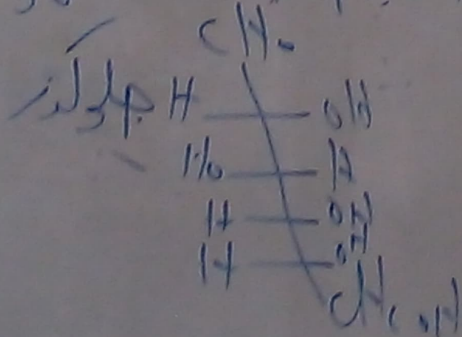 CHO
جلوکز H OH
HO H
H OH
H OH
CH2OH